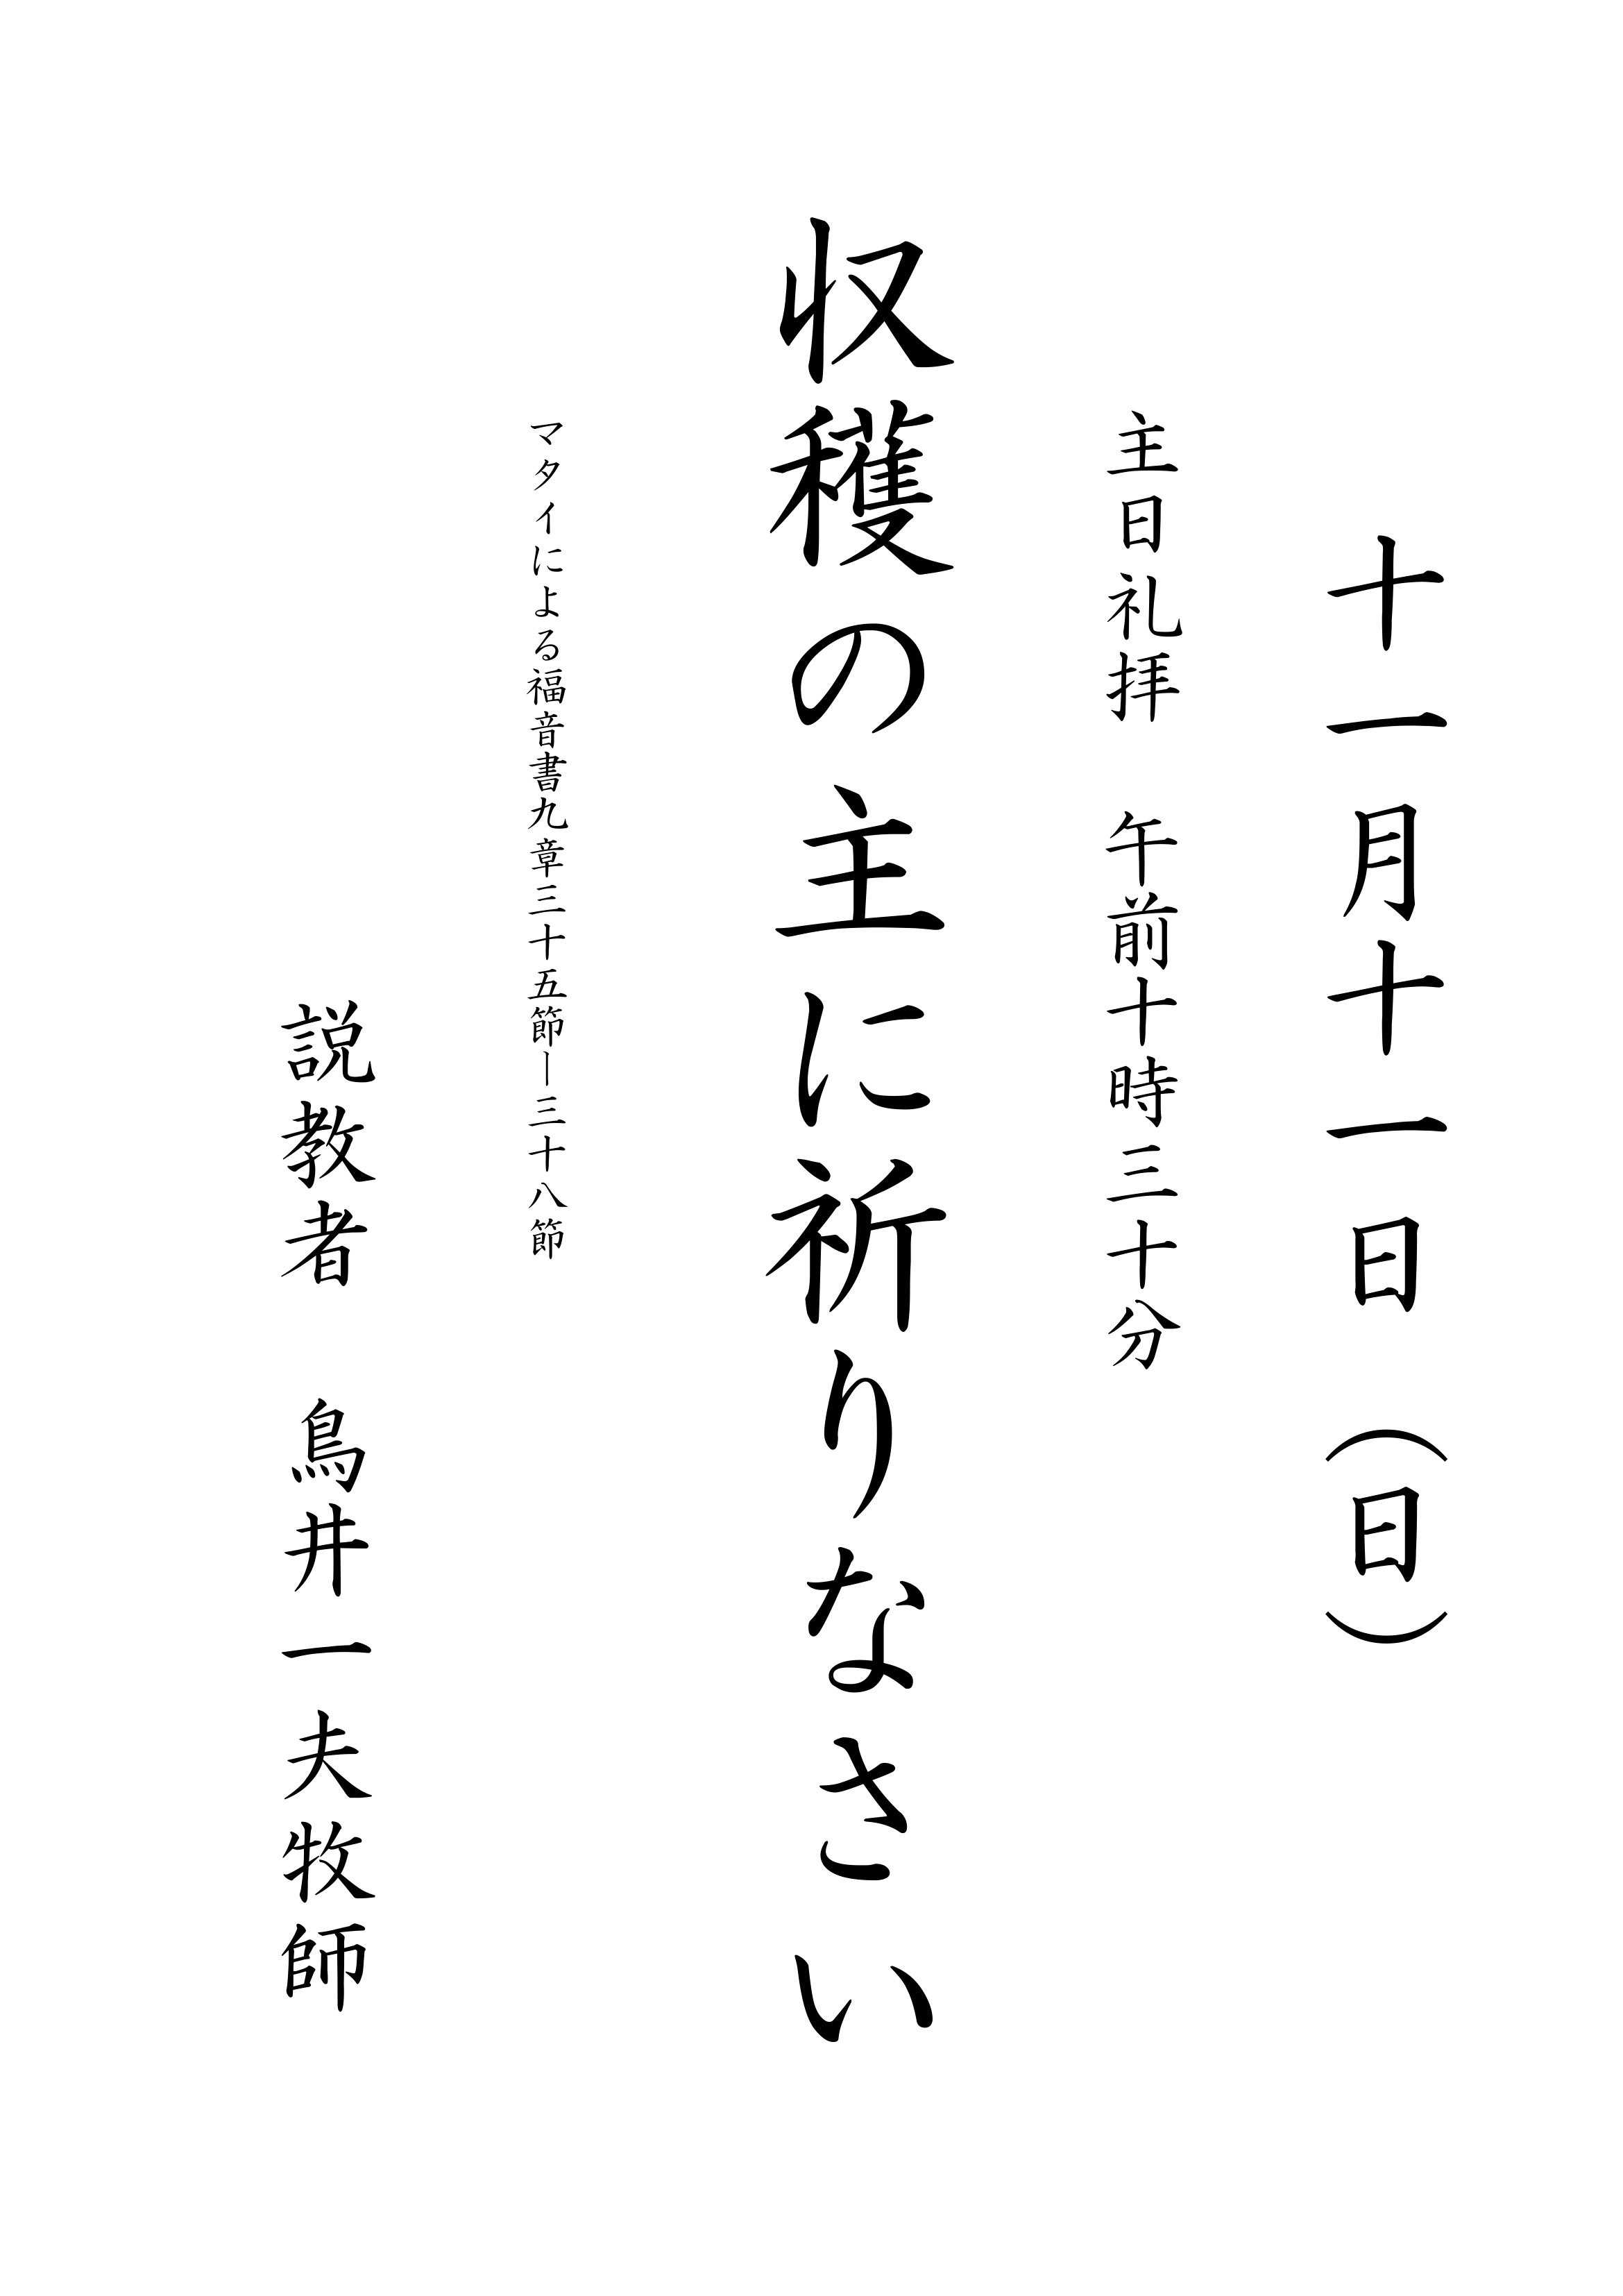 十一月十一日（日）
主日礼拝　午前十時三十分
収穫の主に祈りなさい
マタイによる福音書九章三十五節―三十八節
説教者　鳥井一夫牧師